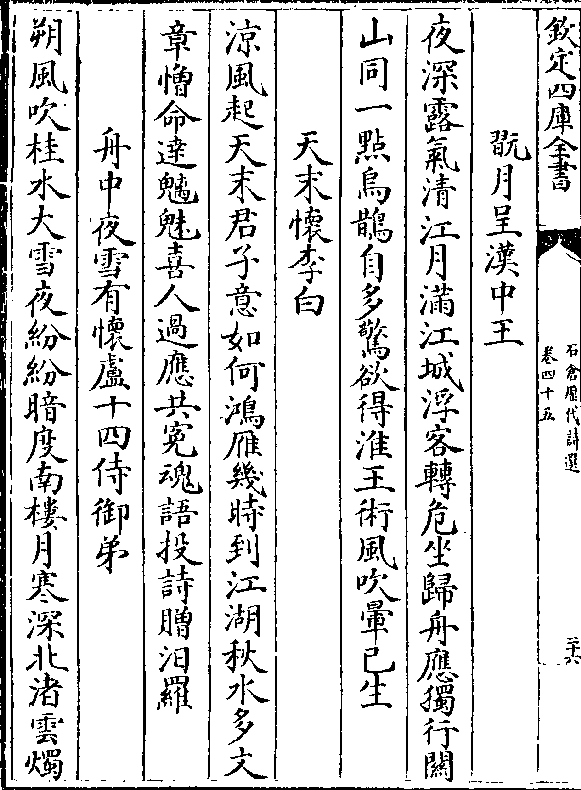 欽定四庫全書
石倉歷代詩選
卷四十五
二十六
翫月呈漢中王
夜深露氣清江月滿江城浮客轉危坐歸舟應獨行關
山同一點烏鵲自多驚欲得淮王術風吹暈已生
天末懷李白
涼風起天末君子意如何鴻雁幾時到江湖秋水多文
章憎命達魑魅喜人過應共冤魂語投詩贈汨羅
舟中夜雪有懷盧十四侍御弟
朔風吹桂水大雪夜紛紛暗度南樓月寒深北渚雲燭